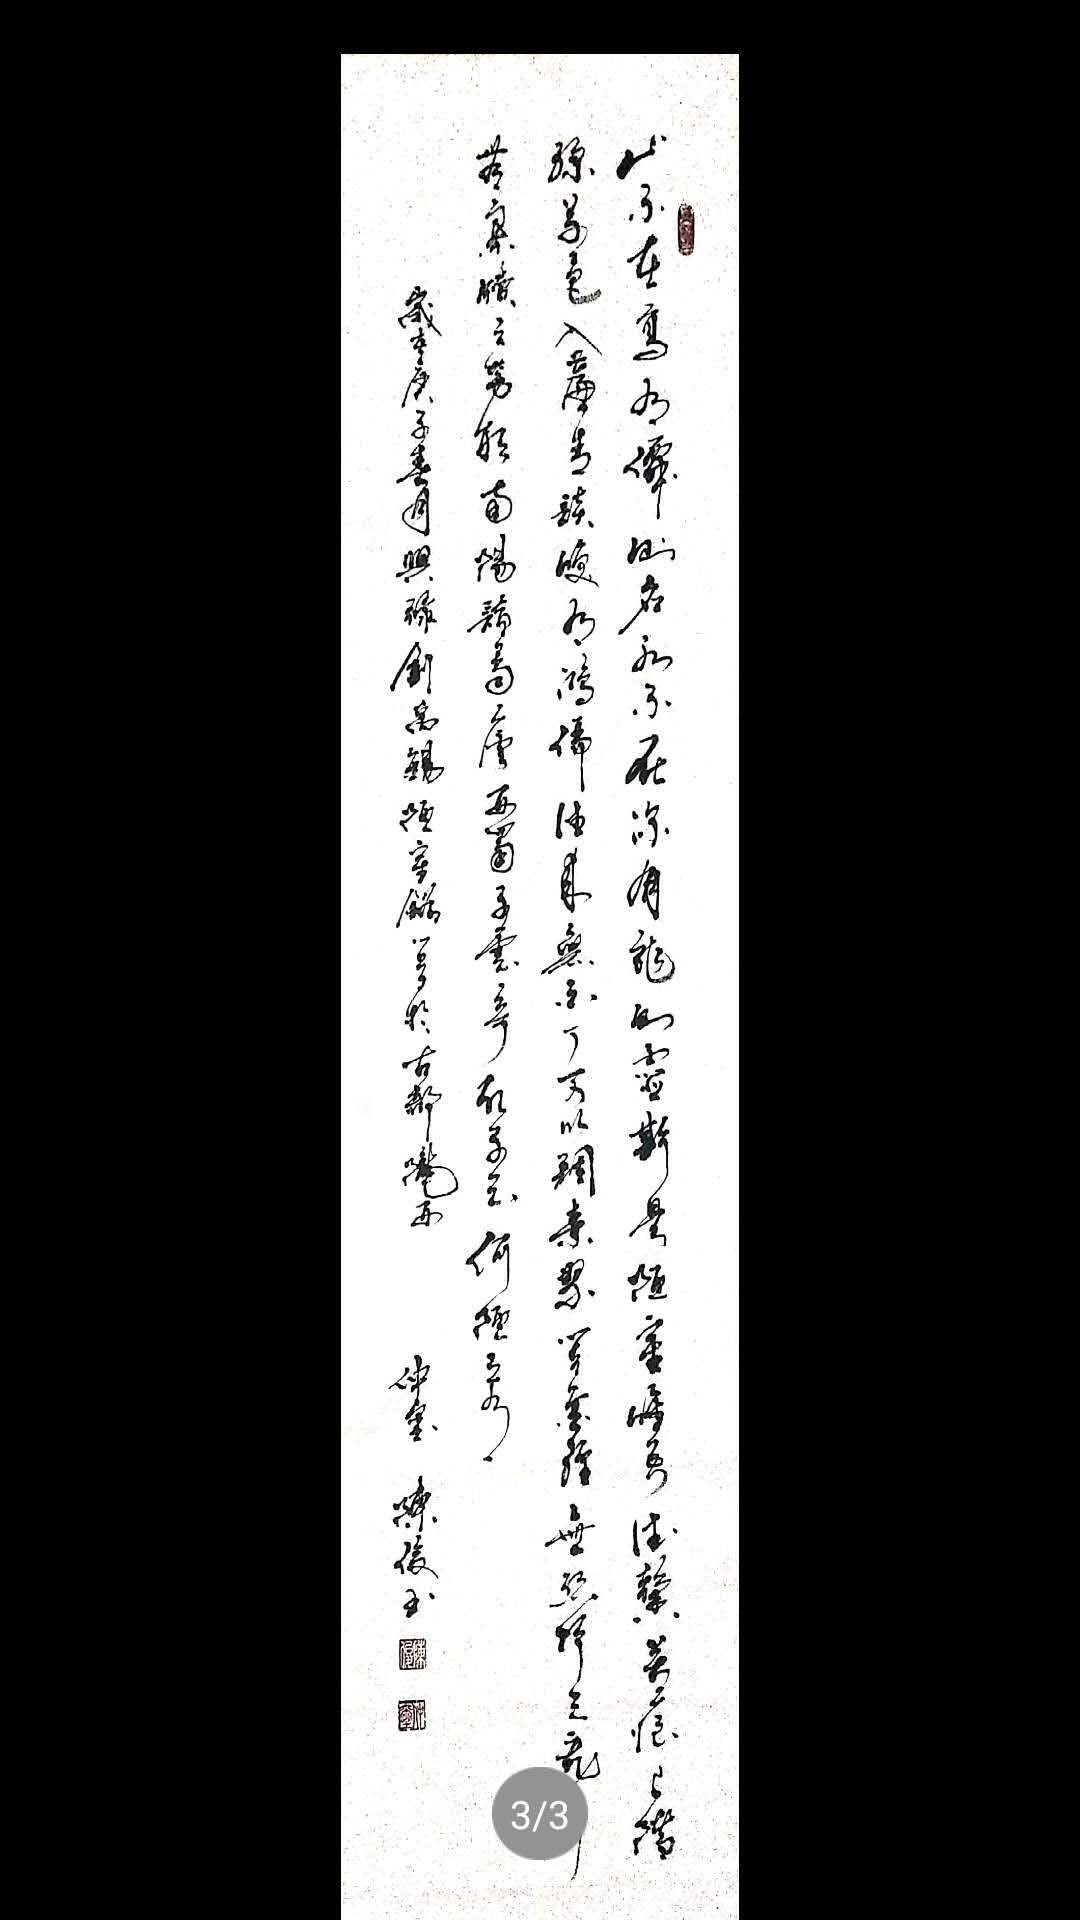 山不在高有僊則名水不在深有龍則靈斯是陋室惟吾德馨苔痕上階
綠草色入簾青談笑有鴻儒往來無白丁可以調素琴閱金經無絲竹之亂耳
無案牘之勞形南陽諸葛廬西蜀子雲亭孔子云何陋之有
歲在庚子春月興錄劉禹錫陋室銘於古都隴西
陳俊
3/3